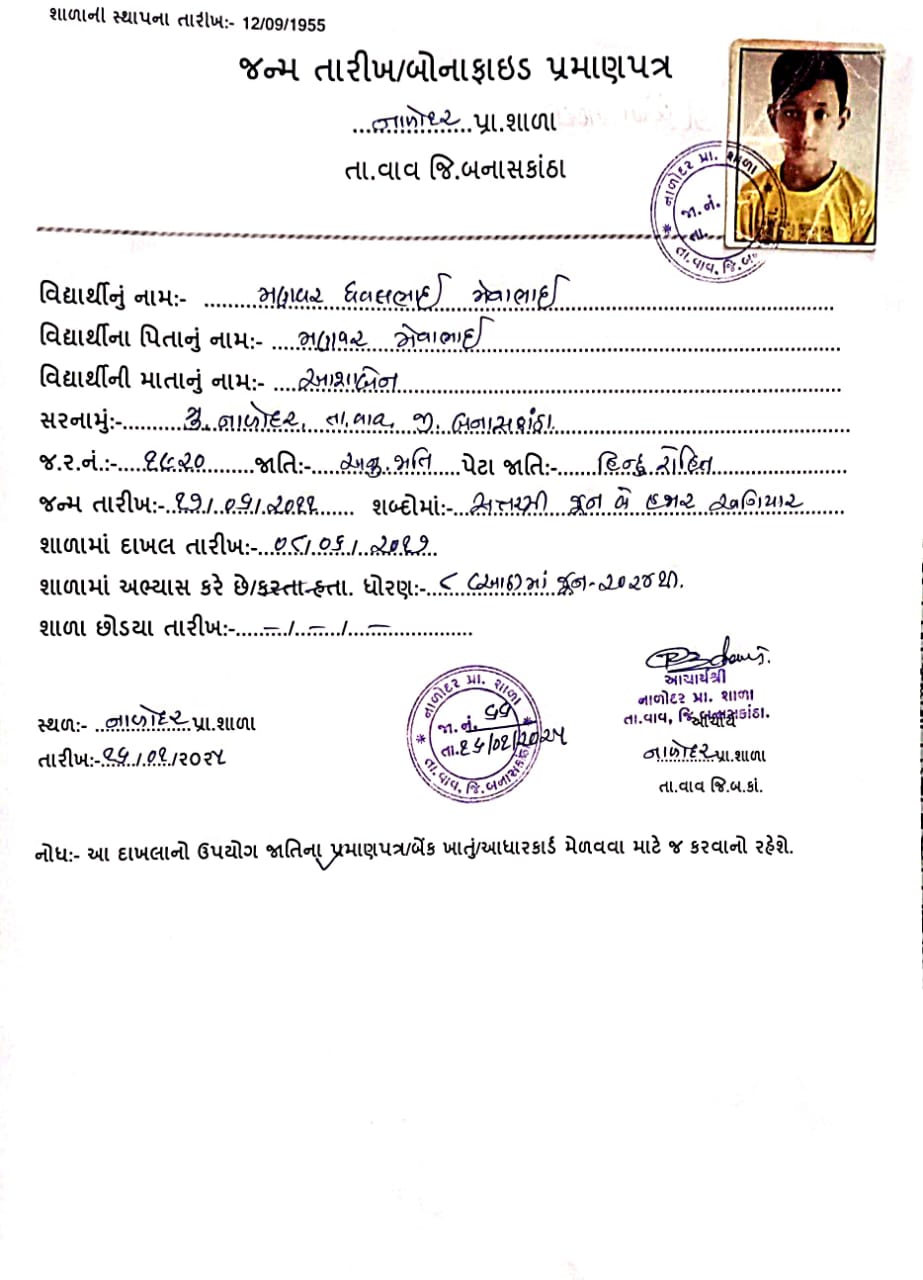 શાળાની સ્થાપના તારીખઃ- 12/09/1955
જન્મ તારીખ/બોનાફાઇડ પ્રમાણપત્ર
...નાળોદર...પ્રા.શાળા
તા.વાવ જિ.બનાસકાંઠા
નાળોદર પ્રા. શાળા
જા. નં.
તા.
તા.વાવ, જિ.બના
વિદ્યાર્થીનું નામઃ- મણવર ધવલભાઈ મેવાભાઈ
વિદ્યાર્થીના પિતાનું નામઃ- મણવર મેવાભાઈ
વિદ્યાર્થીની માતાનું નામઃ- આશાબેન
સરનામુંઃ- મુ. નાળોદર, તા.વાવ, જી. બનાસકાંઠા.
જ.ર.નંઃ- ૧૬૨૦ જાતિઃ- અનુ.જાતિ પેટા જાતિઃ- હિન્દુ રોહિત
જન્મ તારીખઃ- ૧૭/૦૬/૨૦૧૧ શબ્દોમાંઃ- સત્તરમી જૂન બે હજાર અગિયાર
શાળામાં દાખલ તારીખઃ- ૦૮/૦૬/૨૦૧૭
શાળામાં અભ્યાસ કરે છે/કરતા હતા. ધોરણઃ- ૮ (આઠ)માં જૂન-૨૦૨૪થી.
શાળા છોડયા તારીખઃ- — / — / —
આચાર્યશ્રી
નાળોદર પ્રા. શાળા
તા.વાવ, જિ.બનાસકાંઠા.
આચાર્ય
સ્થળઃ- નાળોદર પ્રા.શાળા
નાળોદર પ્રા. શાળા
જા. નં. ૬૬
તા.૧૬/૦૧/૨૦૨૫
તા.વાવ, જિ.બનાસકાંઠા
નાળોદર પ્રા.શાળા
તારીખઃ- ૧૬/૦૧/૨૦૨૫
તા.વાવ જિ.બ.કાં.
નોધઃ- આ દાખલાનો ઉપયોગ જાતિના પ્રમાણપત્ર/બેંક ખાતું/આધારકાર્ડ મેળવવા માટે જ કરવાનો રહેશે.